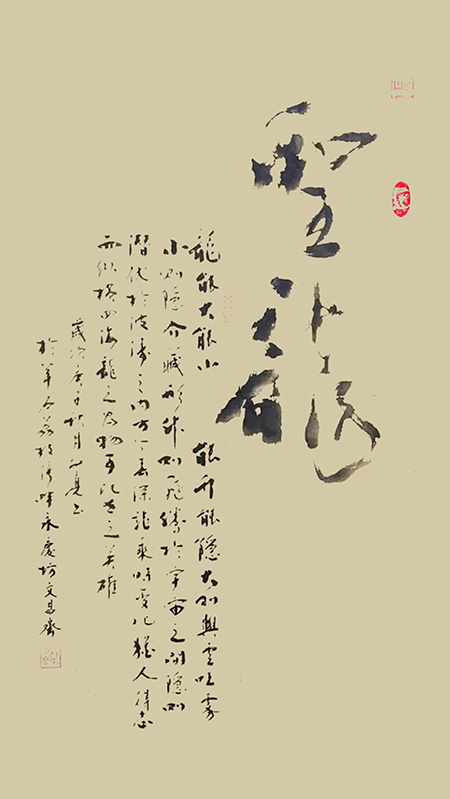 聖
龍能大能小 能升能隱大則興雲吐霧
小則隱介藏形升則飛騰於宇宙之間隱則
潛伏於波濤之內方今春深龍乘時變化猶人得志
而縱橫四海龍之為物可比世之英雄
歲次庚子秋月
於羊石荔枝灣畔永慶坊文昌齋